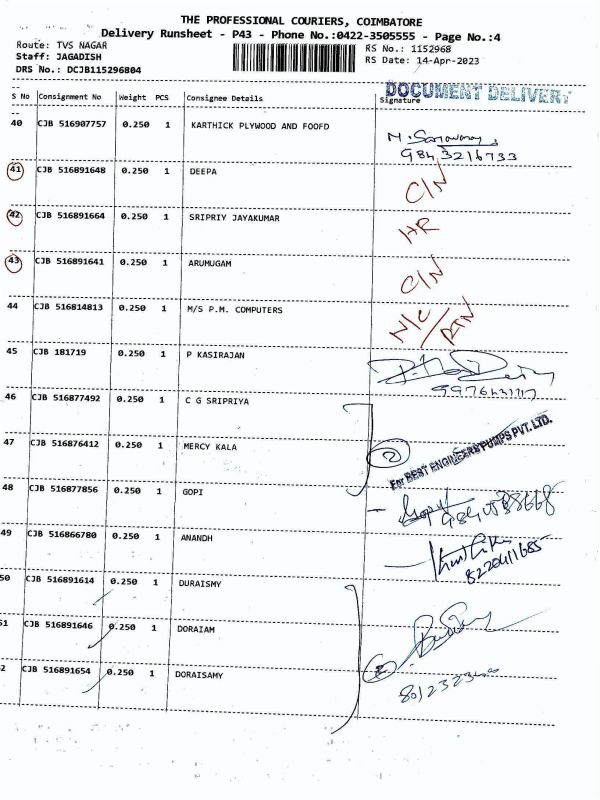 THE PROFESSIONAL COURIERS, COIMBATORE
Delivery Runsheet - P43 - Phone No.:0422-3505555 - Page No.:4
Route: TVS NAGAR
RS No.: 1152968
Staff: JAGADISH
RS Date: 14-Apr-2023
DRS No.: DCJB115296804
DOCUMENT DELIVERY
S No Consignment No Weight PCS Consignee Details Signature
40 CJB 516907757 0.250 1 KARTHICK PLYWOOD AND FOOFD
9843216733
41 CJB 516891648 0.250 1 DEEPA C/N
42 CJB 516891664 0.250 1 SRIPRIY JAYAKUMAR HR
43 CJB 516891641 0.250 1 ARUMUGAM C/N
44 CJB 516814813 0.250 1 M/S P.M. COMPUTERS N/C/RTN
45 CJB 181719 0.250 1 P KASIRAJAN
46 CJB 516877492 0.250 1 C G SRIPRIYA
47 CJB 516876412 0.250 1 MERCY KALA 2 For BEST ENGINEERS PUMPS PVT. LTD.
48 CJB 516877856 0.250 1 GOPI
49 CJB 516866780 0.250 1 ANANDH
8220411685
50 CJB 516891614 0.250 1 DURAISMY
51 CJB 516891646 0.250 1 DORAIAM
2 CJB 516891654 0.250 1 DORAISAMY